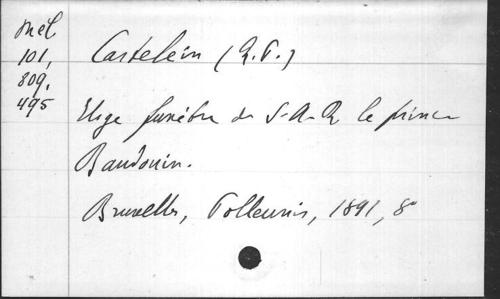 Mél
101,
809,
495
Castelein (R.P.)
Eloge funèbre de S.A.R le prince
Baudouin.
Bruxelles, Polleunis, 1891, 8°